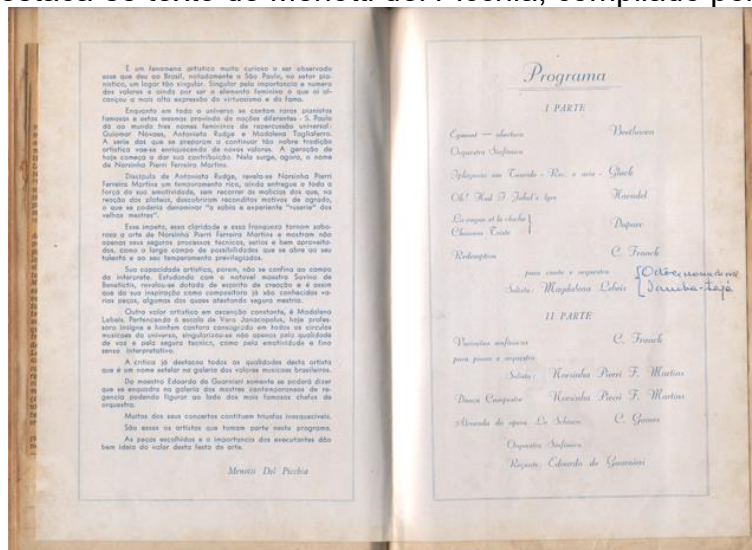 estaca-se texto de Menotti del Picchia, compilado por
É um fenomeno artistico muito curioso a ser observado
esse que deu ao Brasil, notadamente a São Paulo, no setor pia-
nistico, um lugar tão singular. Singular pela importancia e numero
dos valores e ainda por ser o elemento feminino o que aí al-
cançou a mais alta expressão do virtuosismo e da fama.
Enquanto em todo o universo se contam raros pianistas
famosos e estas mesmas provindo de nações diferentes - S. Paulo
dá ao mundo tres nomes femininos de repercussão universal:
Guiomar Novaes, Antonieta Rudge e Madalena Tagliaferro.
A serie das que se preparam a continuar tão nobre tradição
artistica vae-se enriquecendo de novos valores. A geração de
hoje começa a dar sua contribuição. Nela surge, agora, o nome
de Norsinha Pierri Ferreira Martins.
Discipula de Antonieta Rudge, revela-se Norsinha Pierri
Ferreira Martins um temperamento rico, ainda entregue a toda a
força da sua emotividade, sem recorrer às malicias dos que, na
reação das plateas, descobriram reconditos motivos de agrado,
o que se poderia denominar "a sabia e experiente "ruserie" dos
velhos mestres".
Esse impeto, essa claridade e essa franqueza tornam sabo-
rosa a arte de Norsinha Pierri Ferreira Martins e mostram não
apenas seus seguros processos tecnicos, serios e bem aproveita-
dos, como o largo campo de possibilidades que se abre ao seu
talento e ao seu temperamento previlegiados.
Sua capacidade artistica, porém, não se confina ao campo
da interprete. Estudando com o notavel maestro Savino de
Benedictis, revelou-se dotada de espirito de creação e é assim
que da sua inspiração como compositora já são conhecidas va-
rias peças, algumas das quaes atestando segura mestria.
Outro valor artistico em ascenção constante, é Madalena
Lebeis. Pertencendo á escola de Vera Janacopulus, hoje profes-
sora insigne e hontem cantora consagrada em todos os circulos
musicaes do universo, singularizou-se não apenas pela qualidade
de voz e pela segura tecnica, como pela emotividade e fino
senso interpretativo.
A critica já destacou todas as qualidades desta artista
que é um nome estelar na galeria dos valores musicaes brasileiros.
Do maestro Edoardo de Guarnieri somente se poderá dizer
que se enquadra na galeria dos mestres contemporaneos de re-
gencia podendo figurar ao lado dos mais famosos chefes de
orquestra.
Muitos dos seus concertos contituem triunfos inesqueciveis.
São esses os artistas que tomam parte neste programa.
As peças escolhidas e a importancia dos executantes dão
bem ideia do valor desta festa de arte.
Menotti Del Picchia
Programa
I PARTE
Egmont — abertura Beethoven
Orquestra Sinfonica
Iphigenia em Tauride - Rec. e aria - Gluck
Oh! Had I Jubal's lyre Haendel
La vague et la cloche
Chanson Triste Duparc
Redemption C. Franck
para canto e orquestra
Solista: Magdalena Lebeis
II PARTE
Variações sinfonicas C. Franck
para piano e orquestra
Solista: Norsinha Pierri F. Martins
Dança Campestre Norsinha Pierri F. Martins
Alvorada da opera Lo Schiavo C. Gomes
Orquestra Sinfonica
Regente: Edoardo de Guarnieri